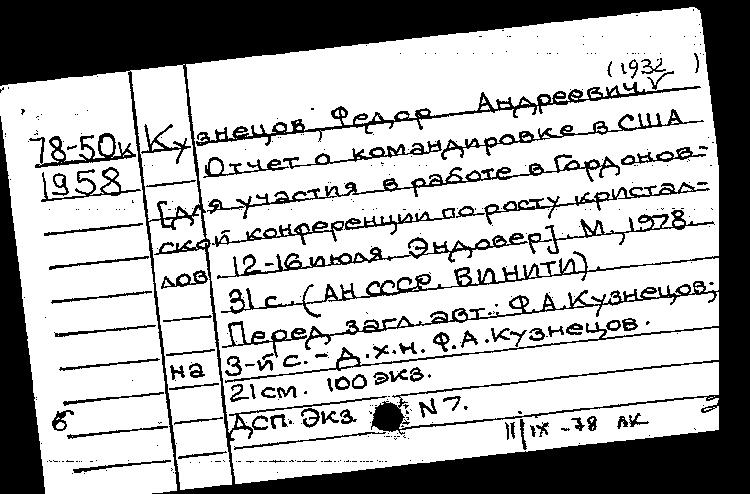 (1932 )
78-50к Кузнецов, Федор Андреевич.
1958 Отчет о командировке в США
[для участия в работе в Гордонов-
ской конференции по росту кристал-
лов 12-16 июля. Эндовер]. М., 1978.
31 с. (АН СССР. ВИНИТИ).
Перед загл. авт.: Ф.А.Кузнецов;
на 3-й с. - д.х.н. Ф.А.Кузнецов.
21 см. 100 экз.
б ДСП. Экз. N 7.
11/IX-78 ЛК